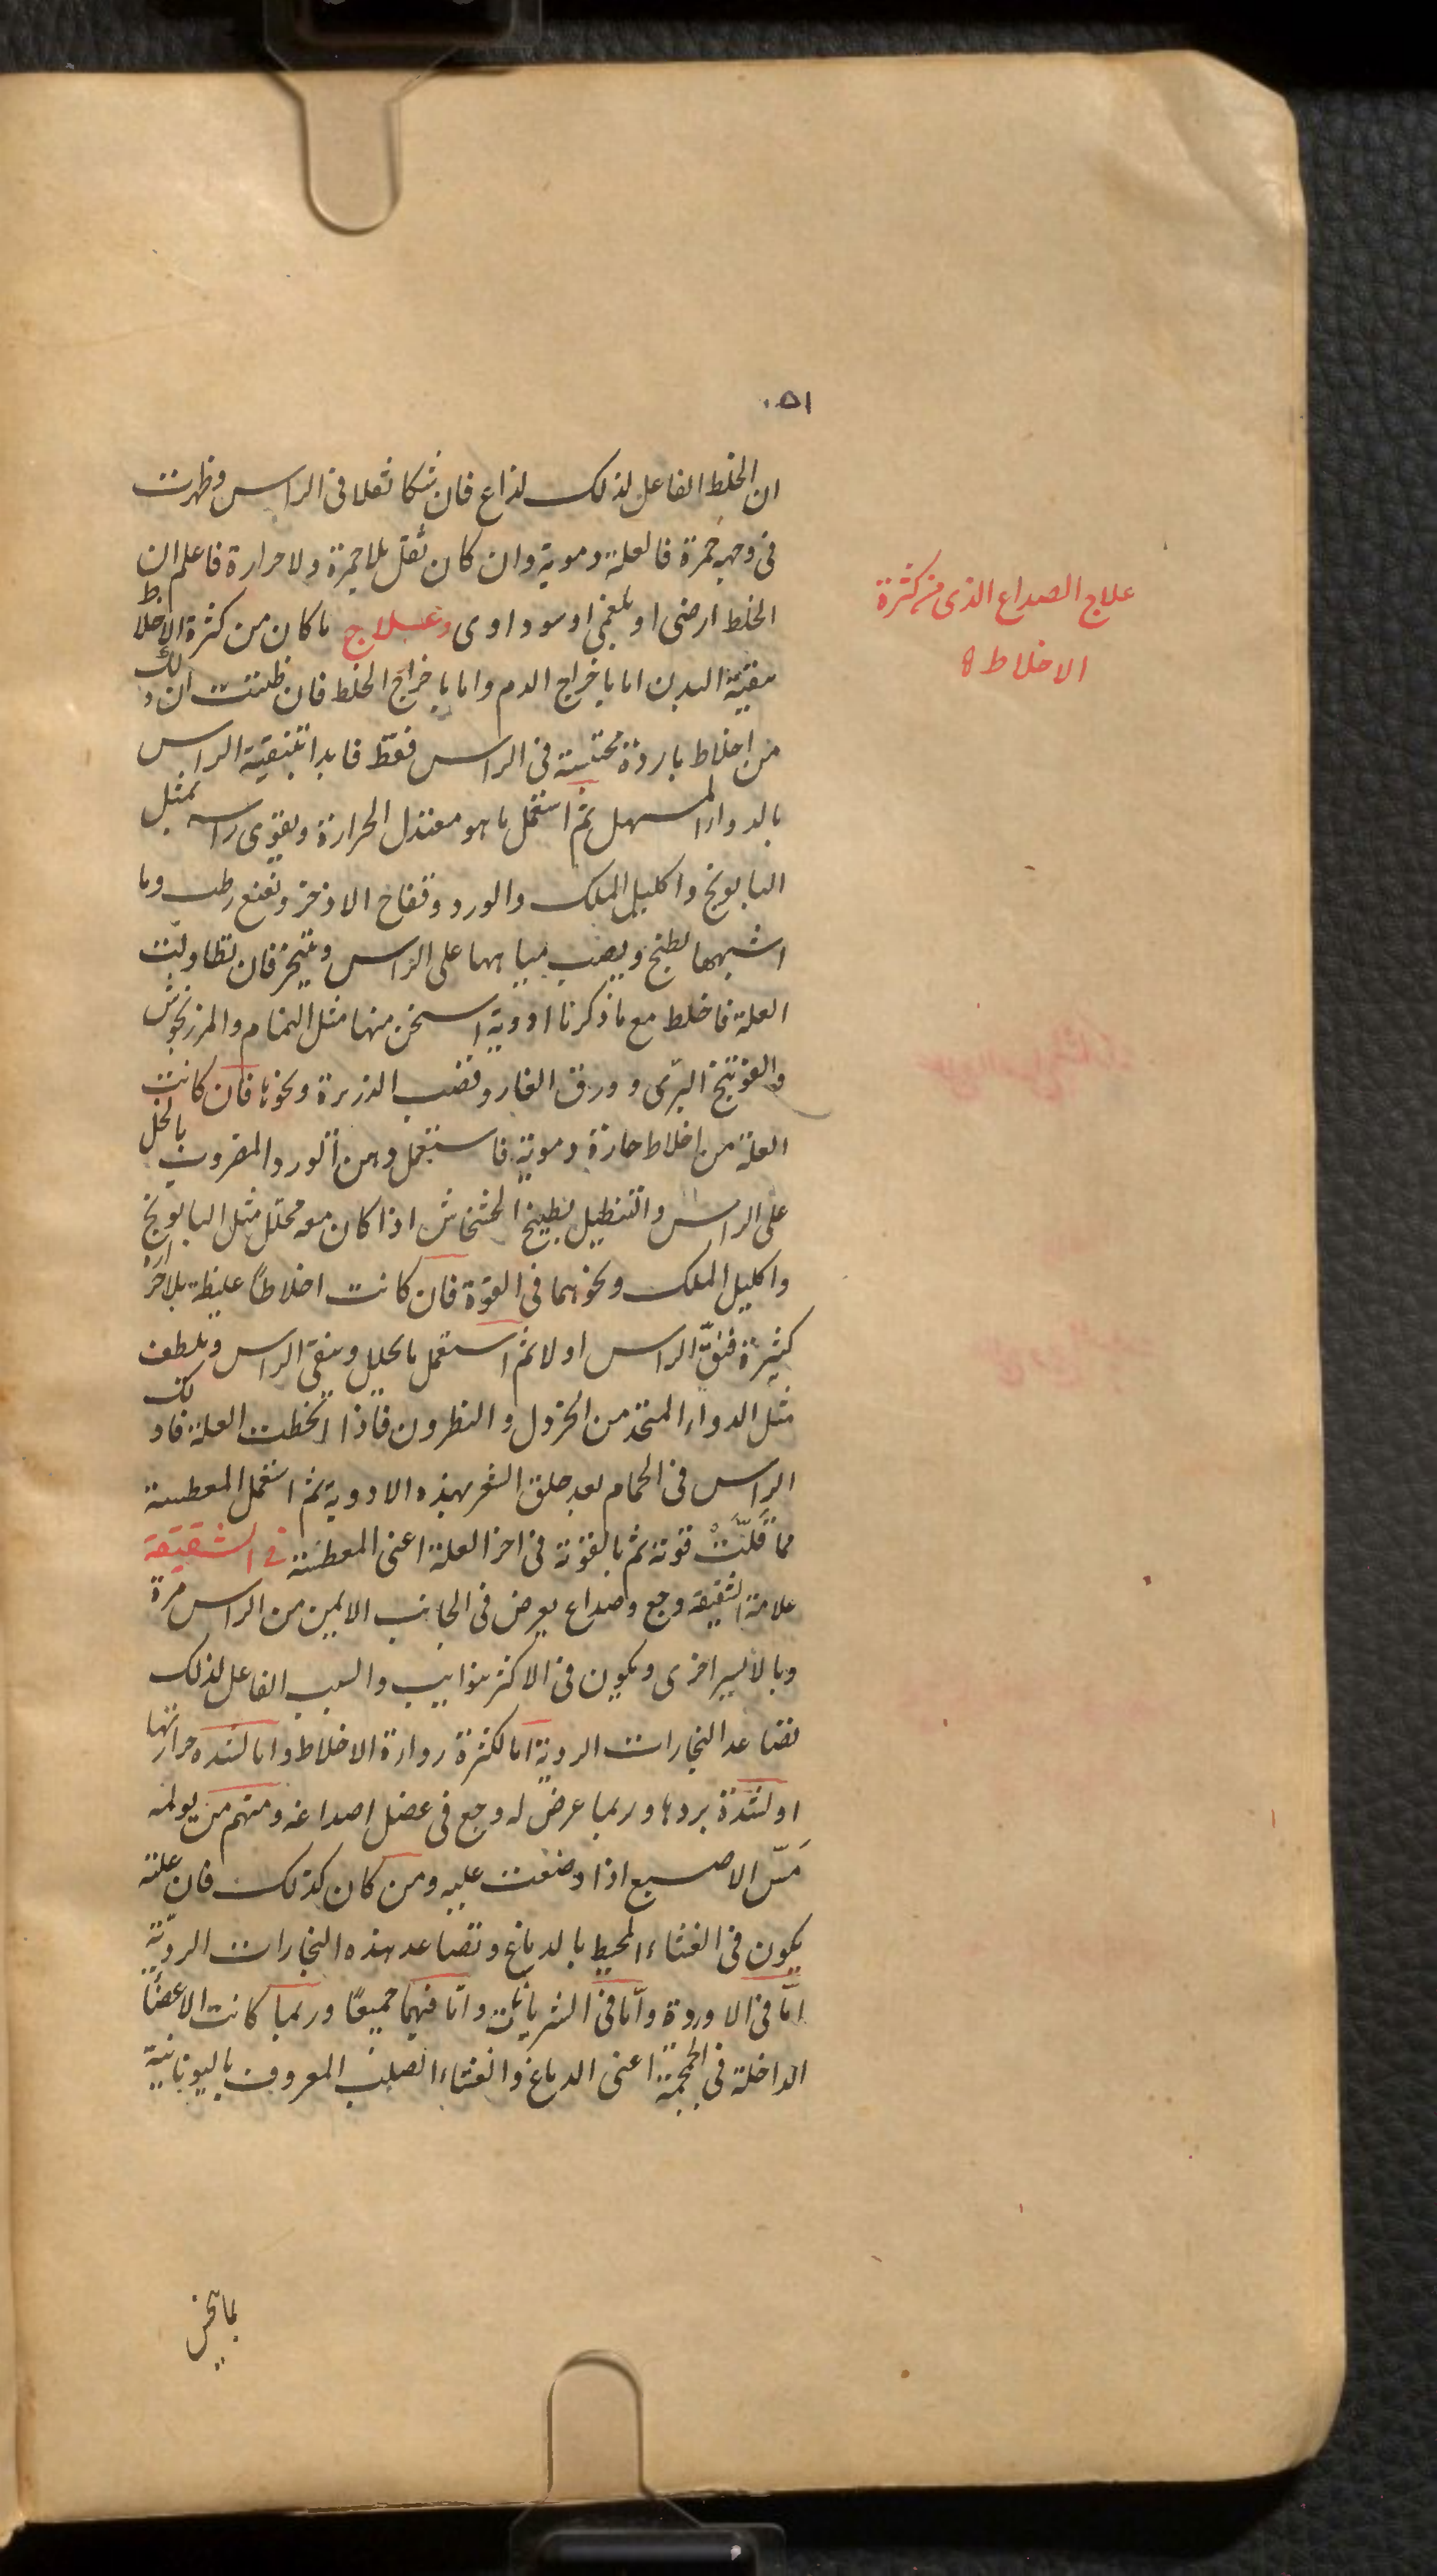 ٠٥١
ان الخلط الفاعل لذلك لذاع فان شكا ثقلا فى الراس وظهرت
فى وجهه حُمرة فالعلة دموية وان كان ثقل بلا حمرة ولا حرارة فاعلم ان
الخلط ارضى او بلغمي او سوداوى وعلاج ما كان من كثرة الاخلاط
علاج الصداع الذى من كثرة
الاخلاط
تنقية البدن اما باخراج الدم واما باخراج الخلط فان ظننت ان ذلك
من اخلاط باردة محتبسة فى الراس فقط فابدا بتنقية الراس
بالدواء المسهل ثم استعمل ما هو معتدل الحرارة ويقوى راسه بمثل
البابونج واكليل الملك والورد وفقاح الاذخر ونعنع رطب وما
اشبهها يطبخ ويصب مياهها على الراس ويتبخر فان تطاولت
العلة فاخلط مع ما ذكرنا ادوية اسخن منها مثل النمام والمرزنجوش
والفوتنج البرّى وورق الغار وقصب الذريرة ونحوها فان كانت
العلة من اخلاط حارة دموية فاستعمل دهن الورد المضروب بالخل
على الراس والتنطيل بطبيخ الخشخاش اذا كان معه محلل مثل البابونج
واكليل الملك ونحوهما فى القوة فان كانت اخلاطاً غليظة بلا حرارة
كثيرة فنقّ الراس اولا ثم استعمل ما يحلل وينقى الراس ويلطف
مثل الدواء المتخذ من الخردل والنطرون فاذا انحطت العلة فادلك
الراس فى الحمام بعد حلق الشعر بهذه الادوية ثم استعمل المعطسة
مما قَلّتْ قوته ثم بالقوية فى اخر العلة اعنى المعطسة فى الشقيقة
علامة الشقيقه وجع وصداع يعرض فى الجانب الايمن من الراس مرة
وبالأيسر اخرى ويكون فى الاكثر بنوايب والسبب الفاعل لذلك
تصاعد البخارات الردية اما لكثرة رداءة الاخلاط واما لشدة حرارتها
او لشدة بردها وربما عرض له وجع فى عضل اصداغه ومنهم من يولمه
مَسّ الاصبع اذا وضعت عليه ومن كان كذلك فان علته
يكون فى الغشاء المحيط بالدماغ وتصاعد هذه البخارات الرديّة
امّا فى الاوردة وامّا فى الشريانات واما فيهما جميعًا وربما كانت الاعضاء
الداخلة فى الجمجمة اعنى الدماغ والغشاء الصلب المعروف باليونانية